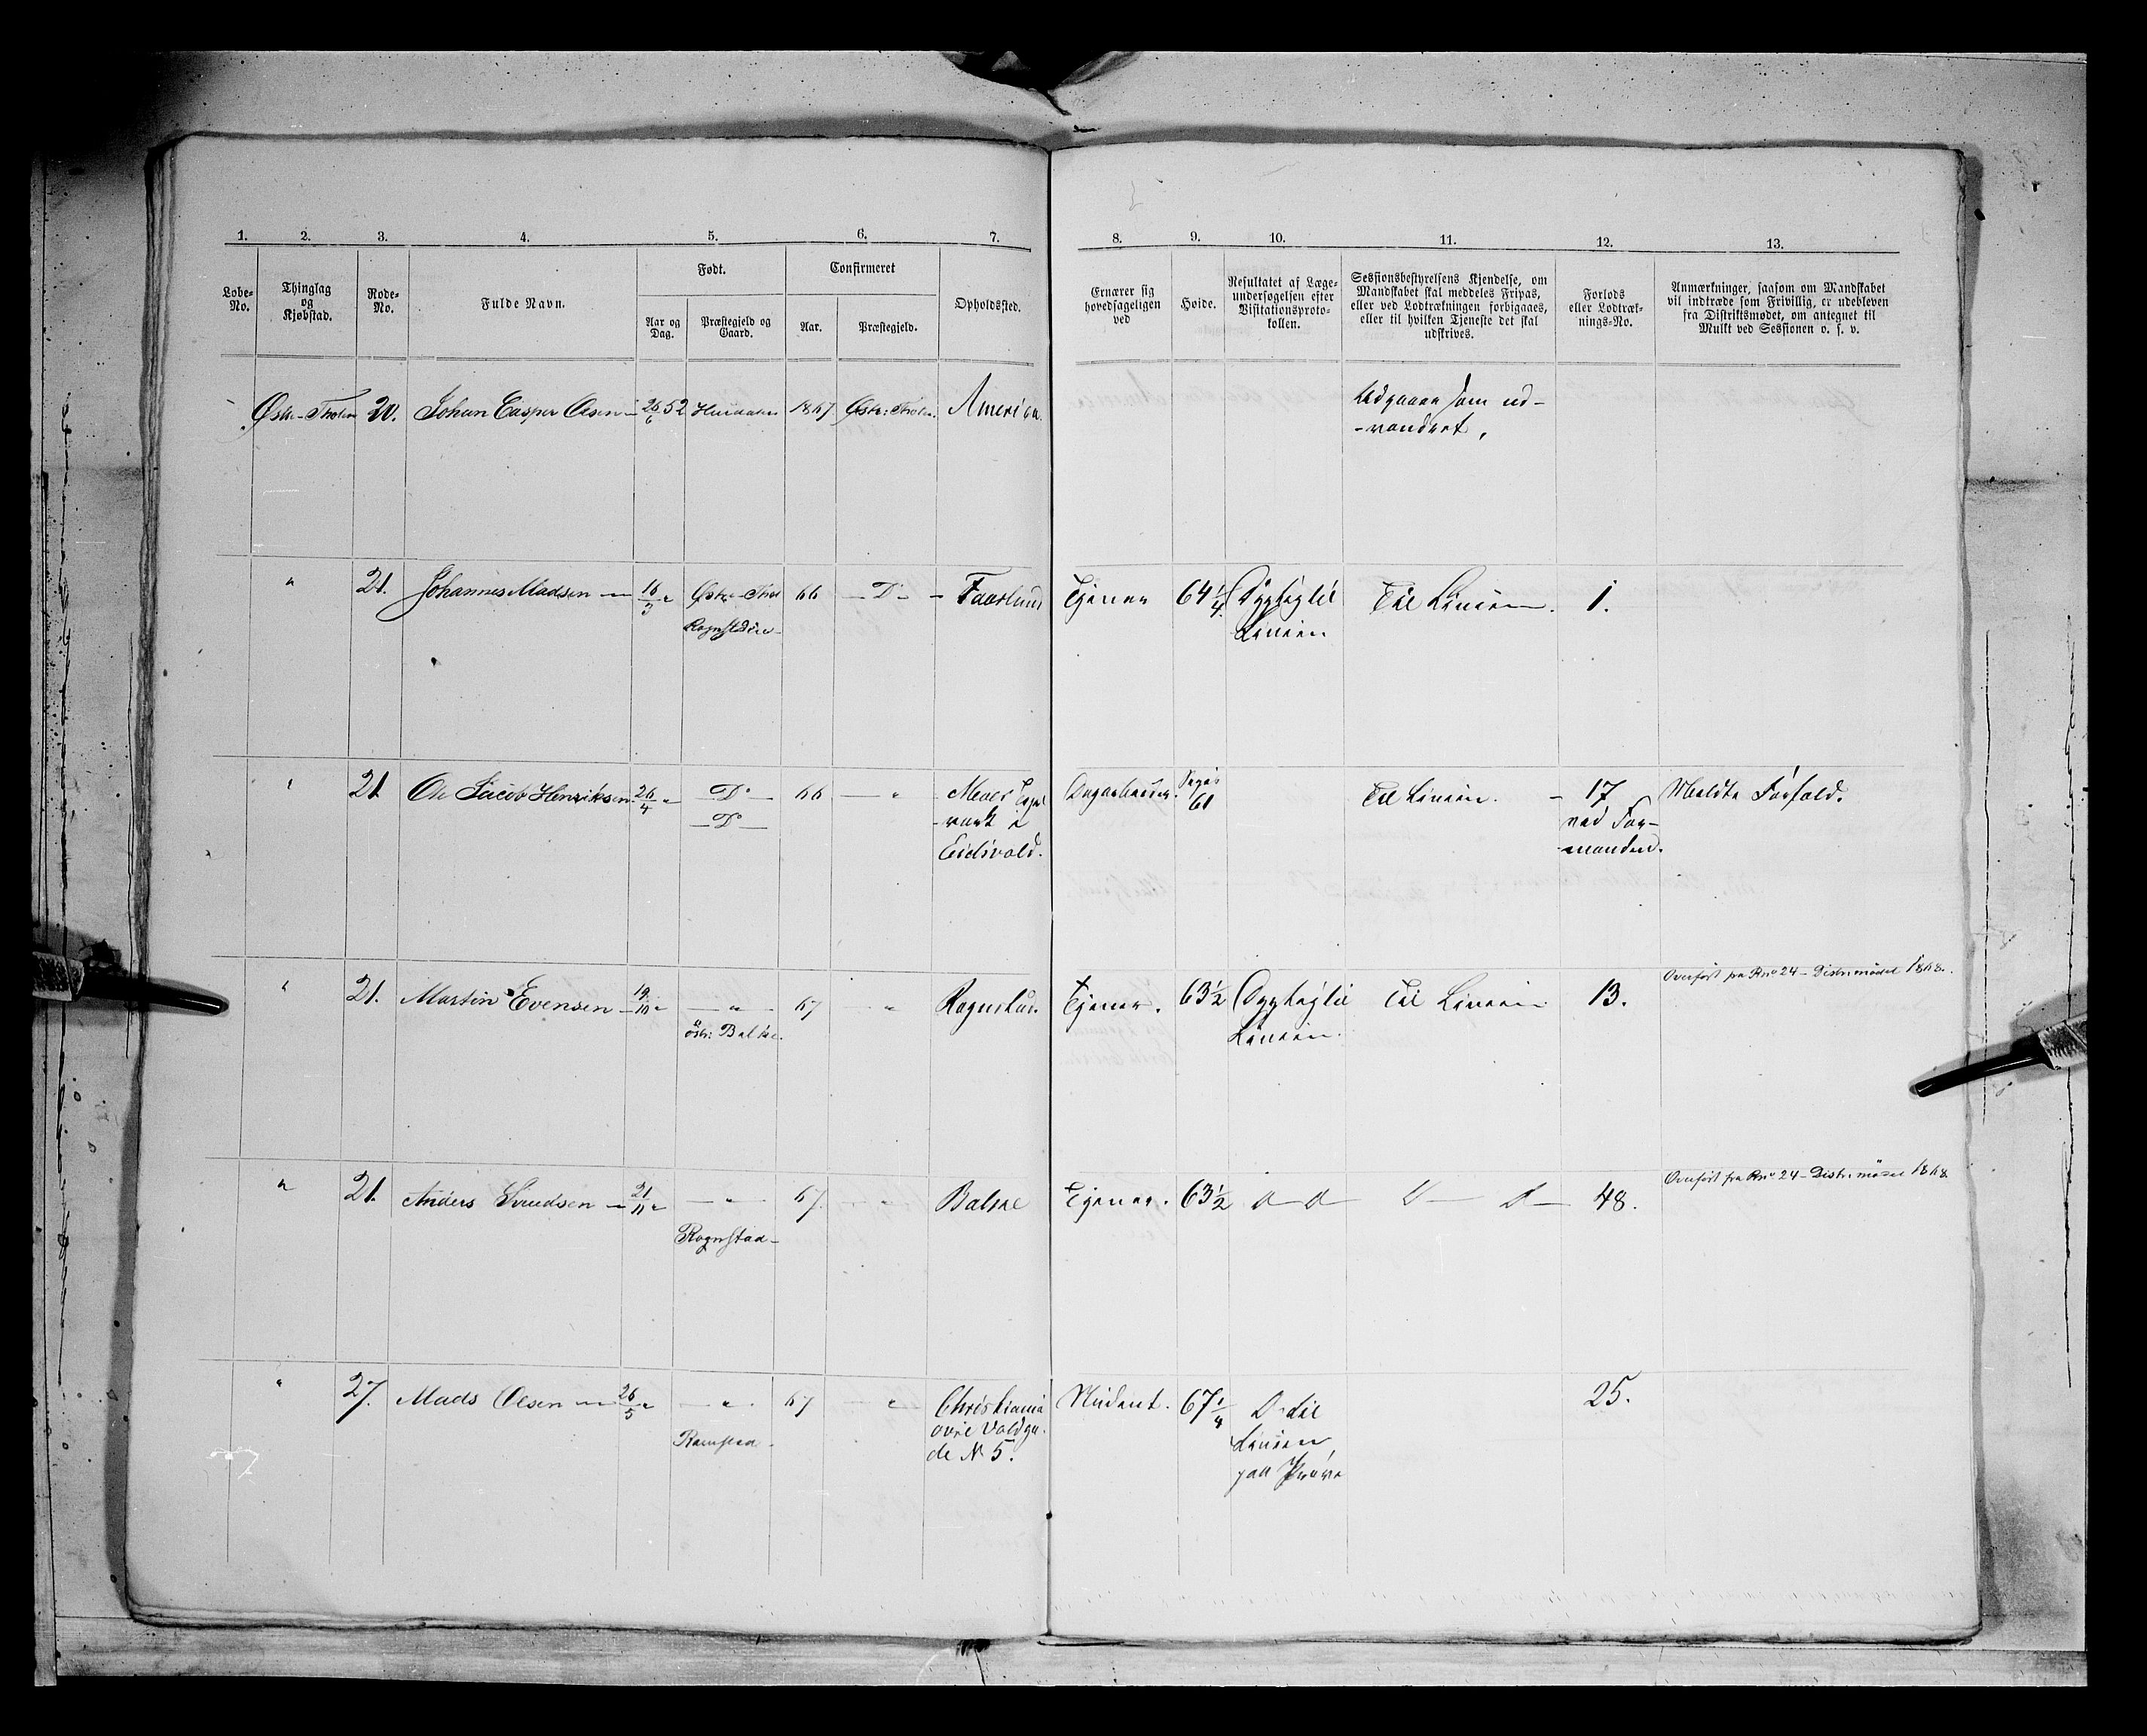 1. 2. 3. 4. 5. 6. 7. 8. 9. 10. 11. 12. 13.
Løbe-No.
Thinglag og Kjøbstad.
Rode-No.
Fulde Navn.
Født.
Aar og Dag.
Præstegjeld og Gaard.
Confirmeret
Aar.
Præstegjeld.
Opholdssted.
Ernærer sig hovedsageligen ved
Høide.
Resultatet af Læge-undersøgelsen efter Visitationsproto-kollen.
Sessionsbestyrelsens Kjendelse, om Mandskabet skal meddeles Fripas, eller ved Lodtrækningen forbigaaes, eller til hvilken Tjeneste det skal udskrives.
Forlods eller Lodtræk-nings-No.
Anmærkninger, saasom om Mandskabet vil indtræde som Frivillig, er udebleven fra Distriktsmødet, om antegnet til Mulkt ved Sessionen o. s. v.
Østr-Thoten 20. Johan Casper Olsen 26/6 52 1867 Østr: Thoten. America Udgaaer som ud-
-vandret,
" 21. Johannes Madsen 16/3 " Østr-Thot 66 D° Faarlund Tjener 64 1/4 Dygtig til Til Linien. 1.
Linien
" 21 Ole Jacob Henriksen 26/4 " D° 66 " 61 Til Linien. 17 Meldte Forfald.
D° ved For-
Eidsvold. manden.
Overført fra Rno 24 - Distr. mødet 1868.
" 21. Martin Evensen 19/10 " " 67 " Rognstad. Tjener. 63 1/2 Dygtig til Til Linien 13.
østr: Balke. Linien.
Overført fra Rno 24 - Distr. mødet 1868
" 21. Anders 21/11 " " 67 Balke Tjener. 63 1/2 D D D D 48.
Rognstad
" 27. Mads Olsen 26/5 " " 67 " Christiania Student. 67 1/4 D til 25.
øvre Voldga- Linien
de N 5. paa Prøve